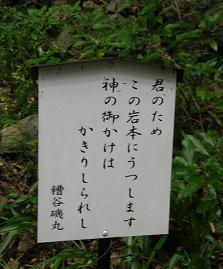 君のため
この岩本にうつします
神の御かけは
かきりしられし
糟谷磯丸